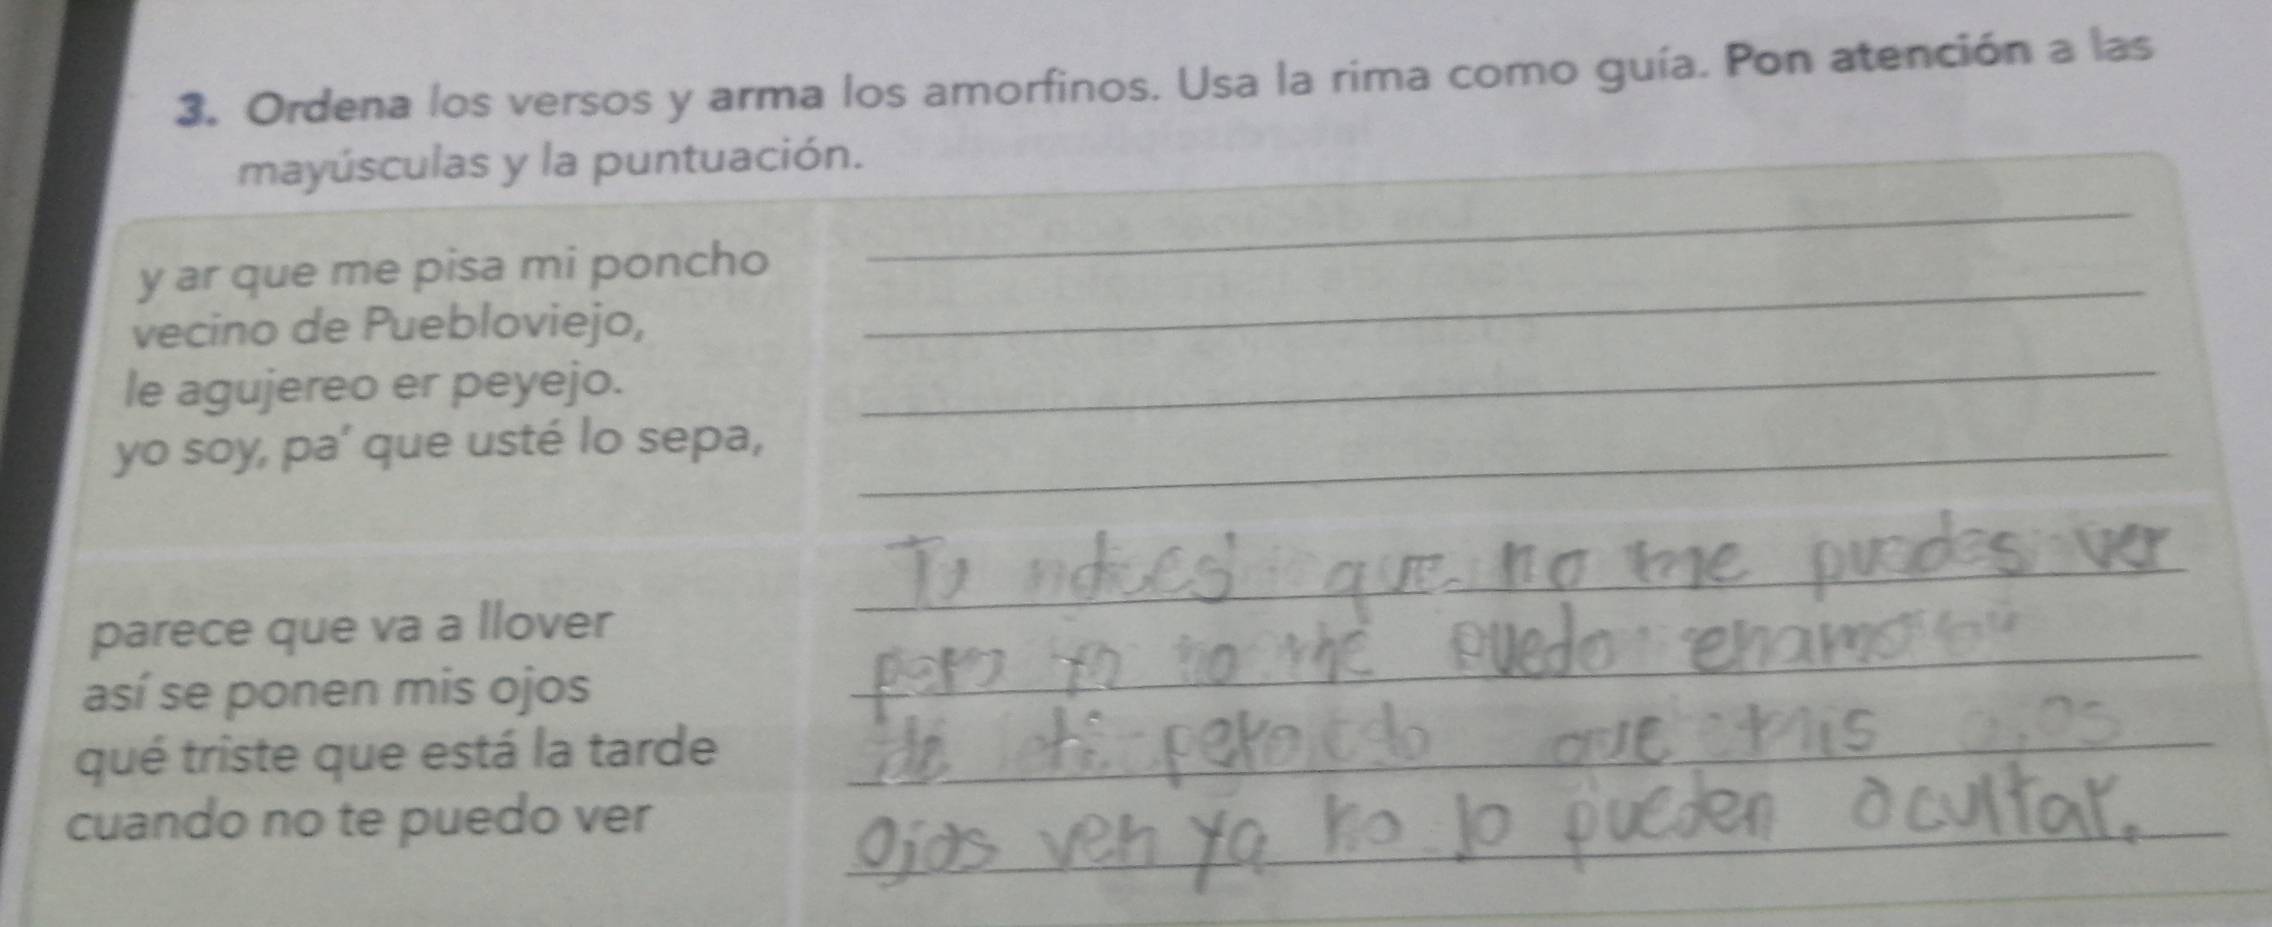 3. Ordena los versos y arma los amorfinos. Usa la rima como guía. Pon atención a las
mayúsculas y la puntuación.
y ar que me pisa mi poncho
vecino de Puebloviejo,
le agujereo er peyejo.
yo soy, pa' que usté lo sepa,
parece que va a llover
así se ponen mis ojos
qué triste que está la tarde
cuando no te puedo ver
Tu dices que no me puedes ver
pero yo no me puedo enamorar
de ti pero todo que mis
ojos ven ya no lo pueden ocultar.